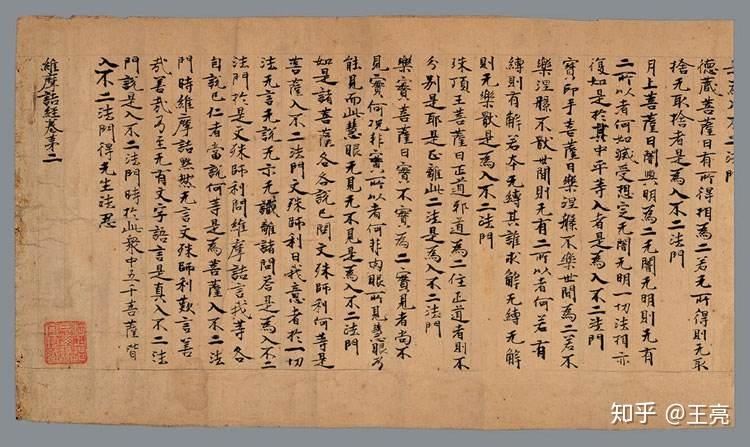 為入不二法門
德藏菩薩曰有所得相為二若无所得則无取
捨无取捨者是為入不二法門
月上菩薩曰闇與明為二无闇无明則无有
二所以者何如滅受想定无闇无明一切法相亦
復如是於其中平等入者是為入不二法門
寶印手菩薩曰樂涅槃不樂世間為二若不
樂涅槃不猒世間則无有二所以者何若有
縛則有解若本无縛其誰求解无縛无解
則无樂猒是為入不二法門
珠頂王菩薩曰正道邪道為二住正道者則不
分別是耶是正離此二法是為入不二法門
樂實菩薩曰實不實為二實見者尚不
見實何况非實所以者何非肉眼所見慧眼乃
能見而此慧眼无見无不見是為入不二法門
如是諸菩薩各各說已問文殊師利何等是
菩薩入不二法門文殊師利曰我意者於一切
法无言无說无示无識離諸問答是為入不二
法門於是文殊師利問維摩詰言我等各
自說已仁者當說何等是為菩薩入不二法
門時維摩詰黙然无言文殊師利歎言善
哉善哉乃至无有文字語言是真入不二法
門說是入不二法門時於此衆中五千菩薩皆
入不二法門得无生法忍
維摩詰經卷第二
知乎 @王亮